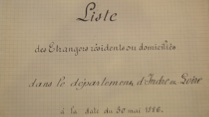 Liste
des Etrangers résidents ou domiciliés
dans le département d'Indre et Loire
à la date du 30 mai